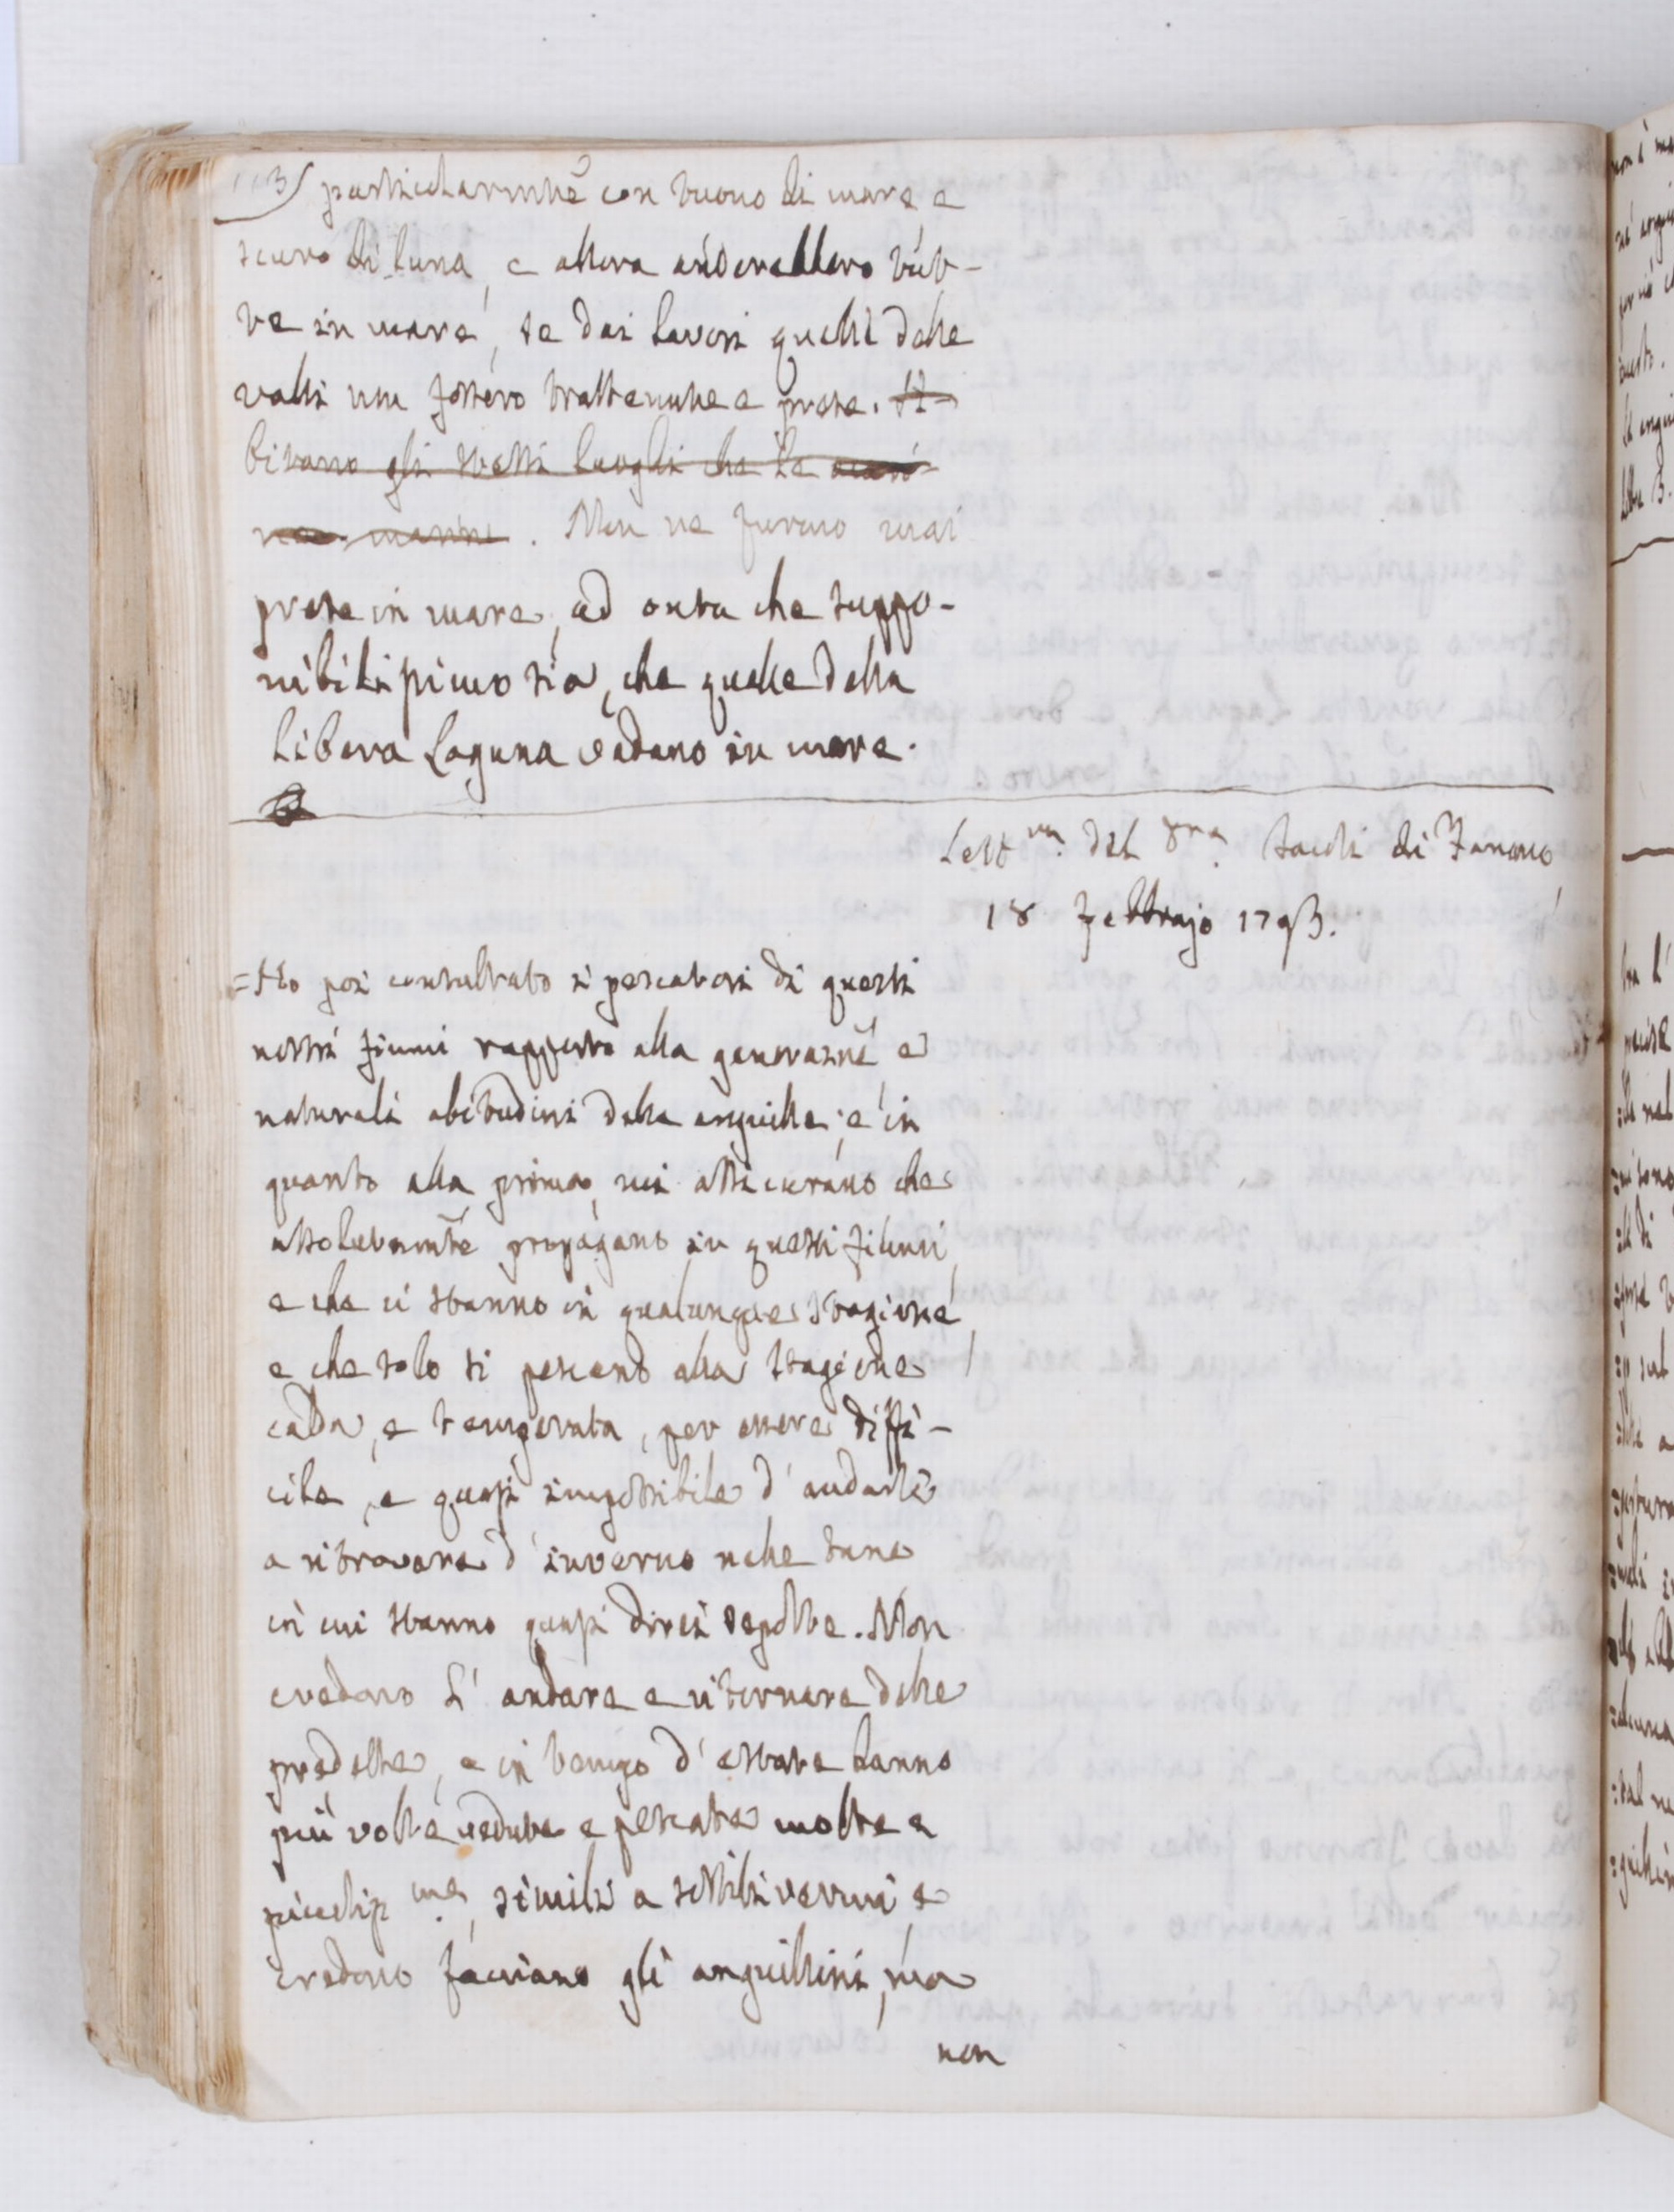 113) particolarmte con tuono di mare e
scuro di luna, e allora anderebbero tut-
te in mare, se dai lavori quelle delle
valli non fossero trattenute e prese. A-
bitano gli stessi luoghi che le
marine. Non ne furono mai
prese in mare, ad onta che suppo-
nibilissimo sia, che quelle della
libera Laguna vadano in mare.
Lettra. del Sra. Sacchi di Fanano,
18 Febbrajo 1793.
= Ho poi consultato i pescatori di questi
nostri fiumi rapporto alla generazne e
naturali abitudini delle anguille; e in
quanto alla prima, mi assicurano che
assolutamte propagano in questi fiumi,
e che ci stanno in qualunque stagione,
e che solo si pescano alla stagione
calda, e temperata, per essere diffi-
cile, e quasi impossibile d'andarle
a ritrovare d'inverno nelle tane
in cui stanno quasi direi sepolte. Non
credono l'andare e ritornare delle
predette, e in tempo d'estate hanno
più volte vedute e pescate molte e
piccolissme, simili a sottili vermi e
credono facciano gli anguillini, ma
non